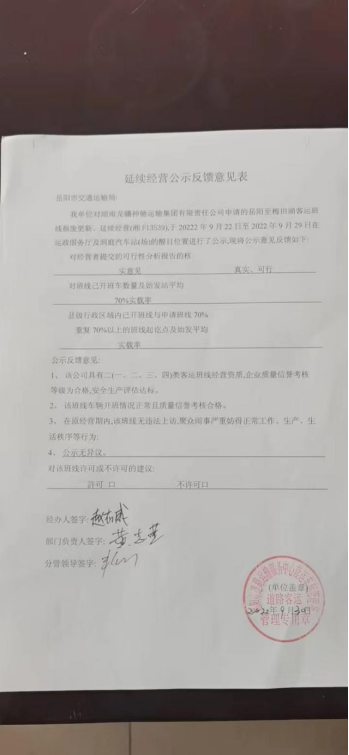 延续经营公示反馈意见表
岳阳市交通运输局:
我单位对湖南龙骧神驰运输集团有限责任公司申请的岳阳至梅田湖客运班
线标准更新、延续经营(湘F13533),于 20222 年 9 月 22 日至 2022 年 9 月 29 日在
运政服务厅及洞庭汽车站(场)的醒目位置进行了公示,现将公示意见反馈如下:
对经营者提交的可行性分析报告的核
实意见 真实、可行
对班线已开班车数量及始发站平均
70%实载率
县级行政区域内已开班线与申请班线 70%
重复 70%以上的班线起讫点及始发平均
实载率
公示反馈意见:
1、 该公司具有二(一、二、三、四)类客运班线经营资质,企业质量信誉考核
等级为合格,安全生产评估达标。
2、 该班线车辆开班情况正常且质量信誉考核合格。
3、 在原经营期内,该班线无违法上访,聚众闹事严重妨得正常工作、生产、生
活秩序等行为:
4、 公示无异议。
对该班线许可或不许可的建议:
許可 口 不许可口
经办人签字:
部门负责人签字:
分管领导签字:
(单位盖章)
道路客运
2022年9月30日
管理专用章